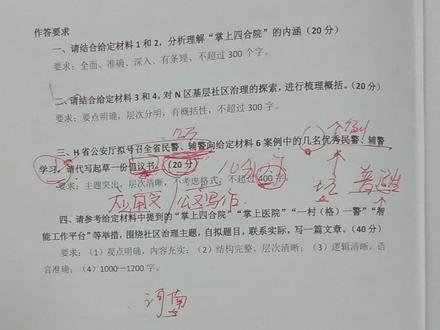 作答要求
一、请结合给定材料1和2，分析理解“掌上四合院”的内涵（20分）
要求：全面、准确、深入、有条理、不超过300个字。
二、请结合给定材料3和4，对N区基层社区治理的探索，进行梳理概括。（20分）
要求：要点明确，层次分明，有概括性，不超过300字。
三、H省公安厅拟号召全省民警、辅警向给定材料6案例中的几名优秀民警、辅警
学习。请代写起草一份倡议书。（20分）
要求：主题突出，层次清晰，不考虑格式，不超过400字。
应用文/公文写作
四、请参考给定材料中提到的“掌上四合院”“掌上医院”“一村（格）一警”“智
能工作平台”等举措，围绕社区治理主题，自拟题目，联系实际，写一篇文章。（40分）
要求：（1）观点明确，内容充实；（2）结构完整，层次清晰；（3）逻辑清晰，语
言准确；（4）1000—1200字。
河南